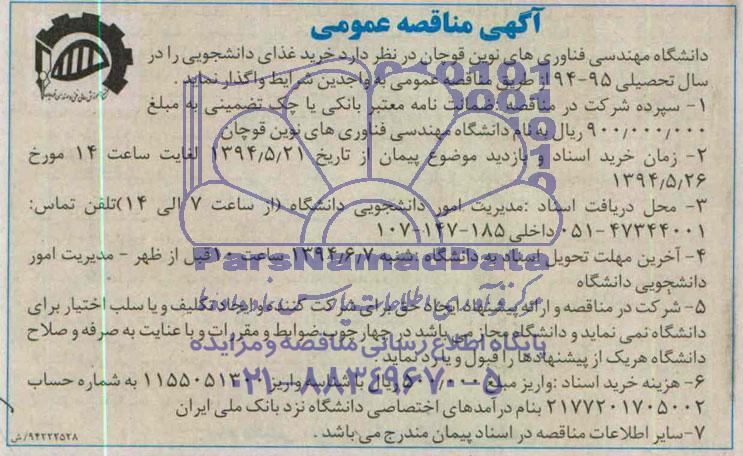 آگهی مناقصه عمومی
دانشگاه مهندسی فناوری های نوین قوچان در نظر دارد خرید غذای دانشجویی را در
سال تحصیلی ۹۵-۹۴ از طریق مناقصه عمومی به واجدین شرایط واگذار نماید .
۱- سپرده شرکت در مناقصه :ضمانت نامه معتبر بانکی یا چک تضمینی به مبلغ
۹۰۰/۰۰۰/۰۰۰ ریال به نام دانشگاه مهندسی فناوری های نوین قوچان
۲- زمان خرید اسناد و بازدید موضوع پیمان از تاریخ ۱۳۹۴/۵/۲۱ لغایت ساعت ۱۴ مورخ
۱۳۹۴/۵/۲۶
۳- محل دریافت اسناد :مدیریت امور دانشجویی دانشگاه (از ساعت ۷ الی ۱۴)تلفن تماس:
۰۵۱-۴۷۳۴۴۰۰۱ داخلی ۱۸۵-۱۴۷-۱۰۷
۴- آخرین مهلت تحویل اسناد به دانشگاه :شنبه ۱۳۹۴/۶/۷ ساعت ۱۰قبل از ظهر - مدیریت امور
دانشجویی دانشگاه
۵- شرکت در مناقصه و ارائه پیشنهاد ایجاد حق برای شرکت کننده و ایجاد تکلیف و یا سلب اختیار برای
دانشگاه نمی نماید و دانشگاه مجاز می باشد در چهارچوب ضوابط و مقررات و با عنایت به صرفه و صلاح
دانشگاه هریک از پیشنهادها را قبول و یا رد نماید .
۶- هزینه خرید اسناد :واریز مبلغ ۵۰۰/۰۰۰ ریال با شناسه واریز ۱۱۵۵۰۵۱۳۰۰ به شماره حساب
۲۱۷۷۲۰۱۷۰۵۰۰۲ بنام درآمدهای اختصاصی دانشگاه نزد بانک ملی ایران
۷-سایر اطلاعات مناقصه در اسناد پیمان مندرج می باشد .
۹۴۲۲۲۵۲۸/ش
ParsNamadData
پایگاه اطلاع رسانی مناقصه و مزایده
۰۲۱-۸۸۳۴۹۶۷۰-۵